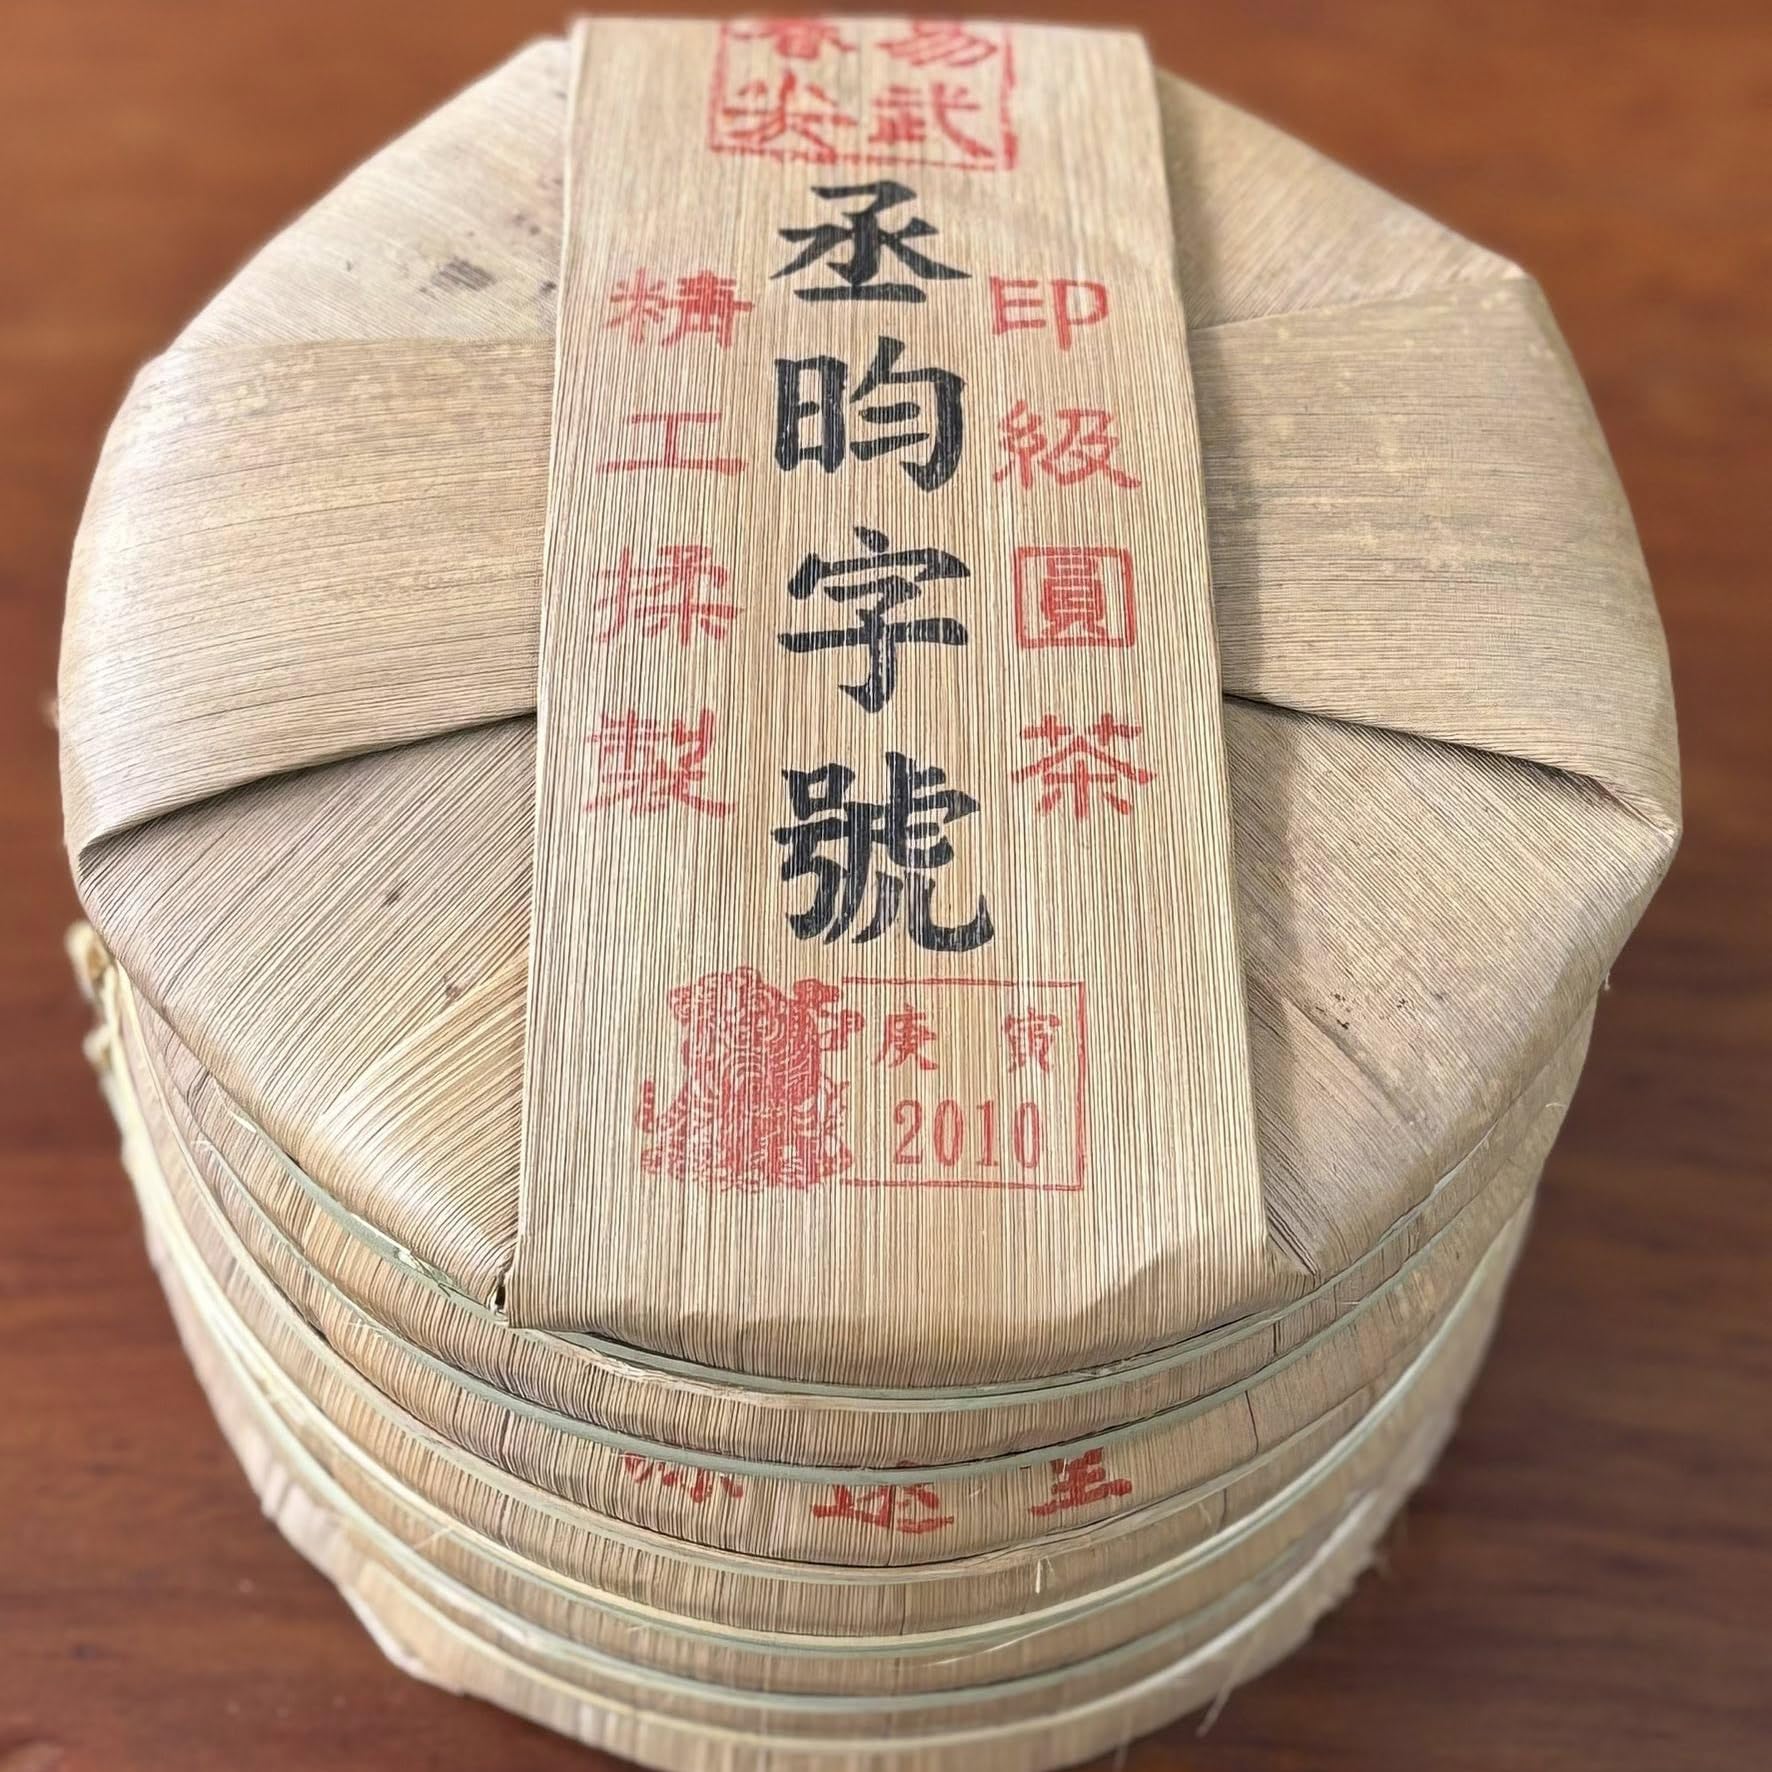 易武
春尖
丞昀字號
印級圓茶
精工揉製
庚寅
2010